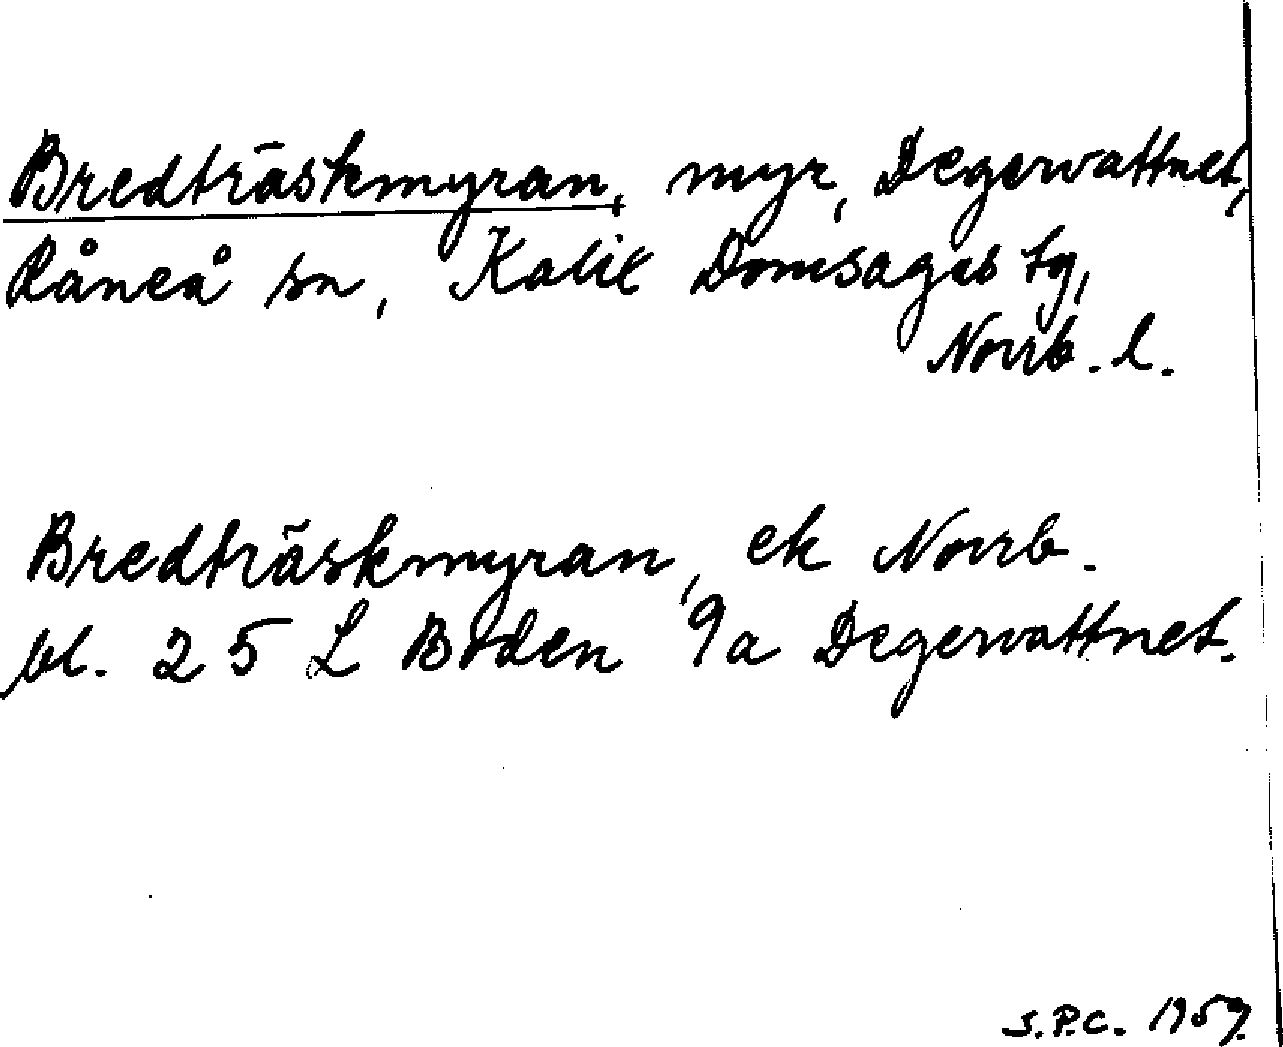 Bredträskmyran, myr, Degervattnet,
Råneå sn, Kalix Domsagas tg,
Norrb. l.
Bredträskmyran, ek Norrb.
bl. 25 L Boden 9a Degervattnet.
S.P.C. 1959.